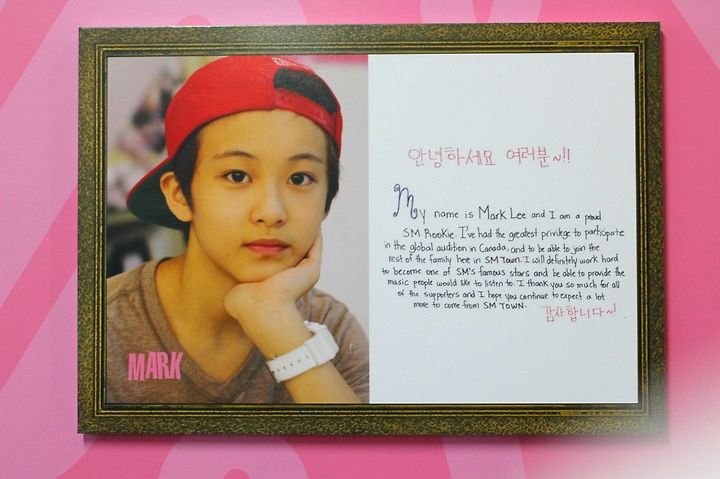 MARK
안녕하세요 여러분~!!
My name is Mark Lee and I am a proud
SM Rookie. I've had the greatest privilege to participate
in the global audition in Canada, and to be able to join the
rest of the family here in SM Town. I will definitely work hard
to become one of SM's famous stars and be able to provide the
music people would like to listen to. I thank you so much for all
of the supporters and I hope you continue to expect a lot
more to come from SM TOWN.
감사합니다~!